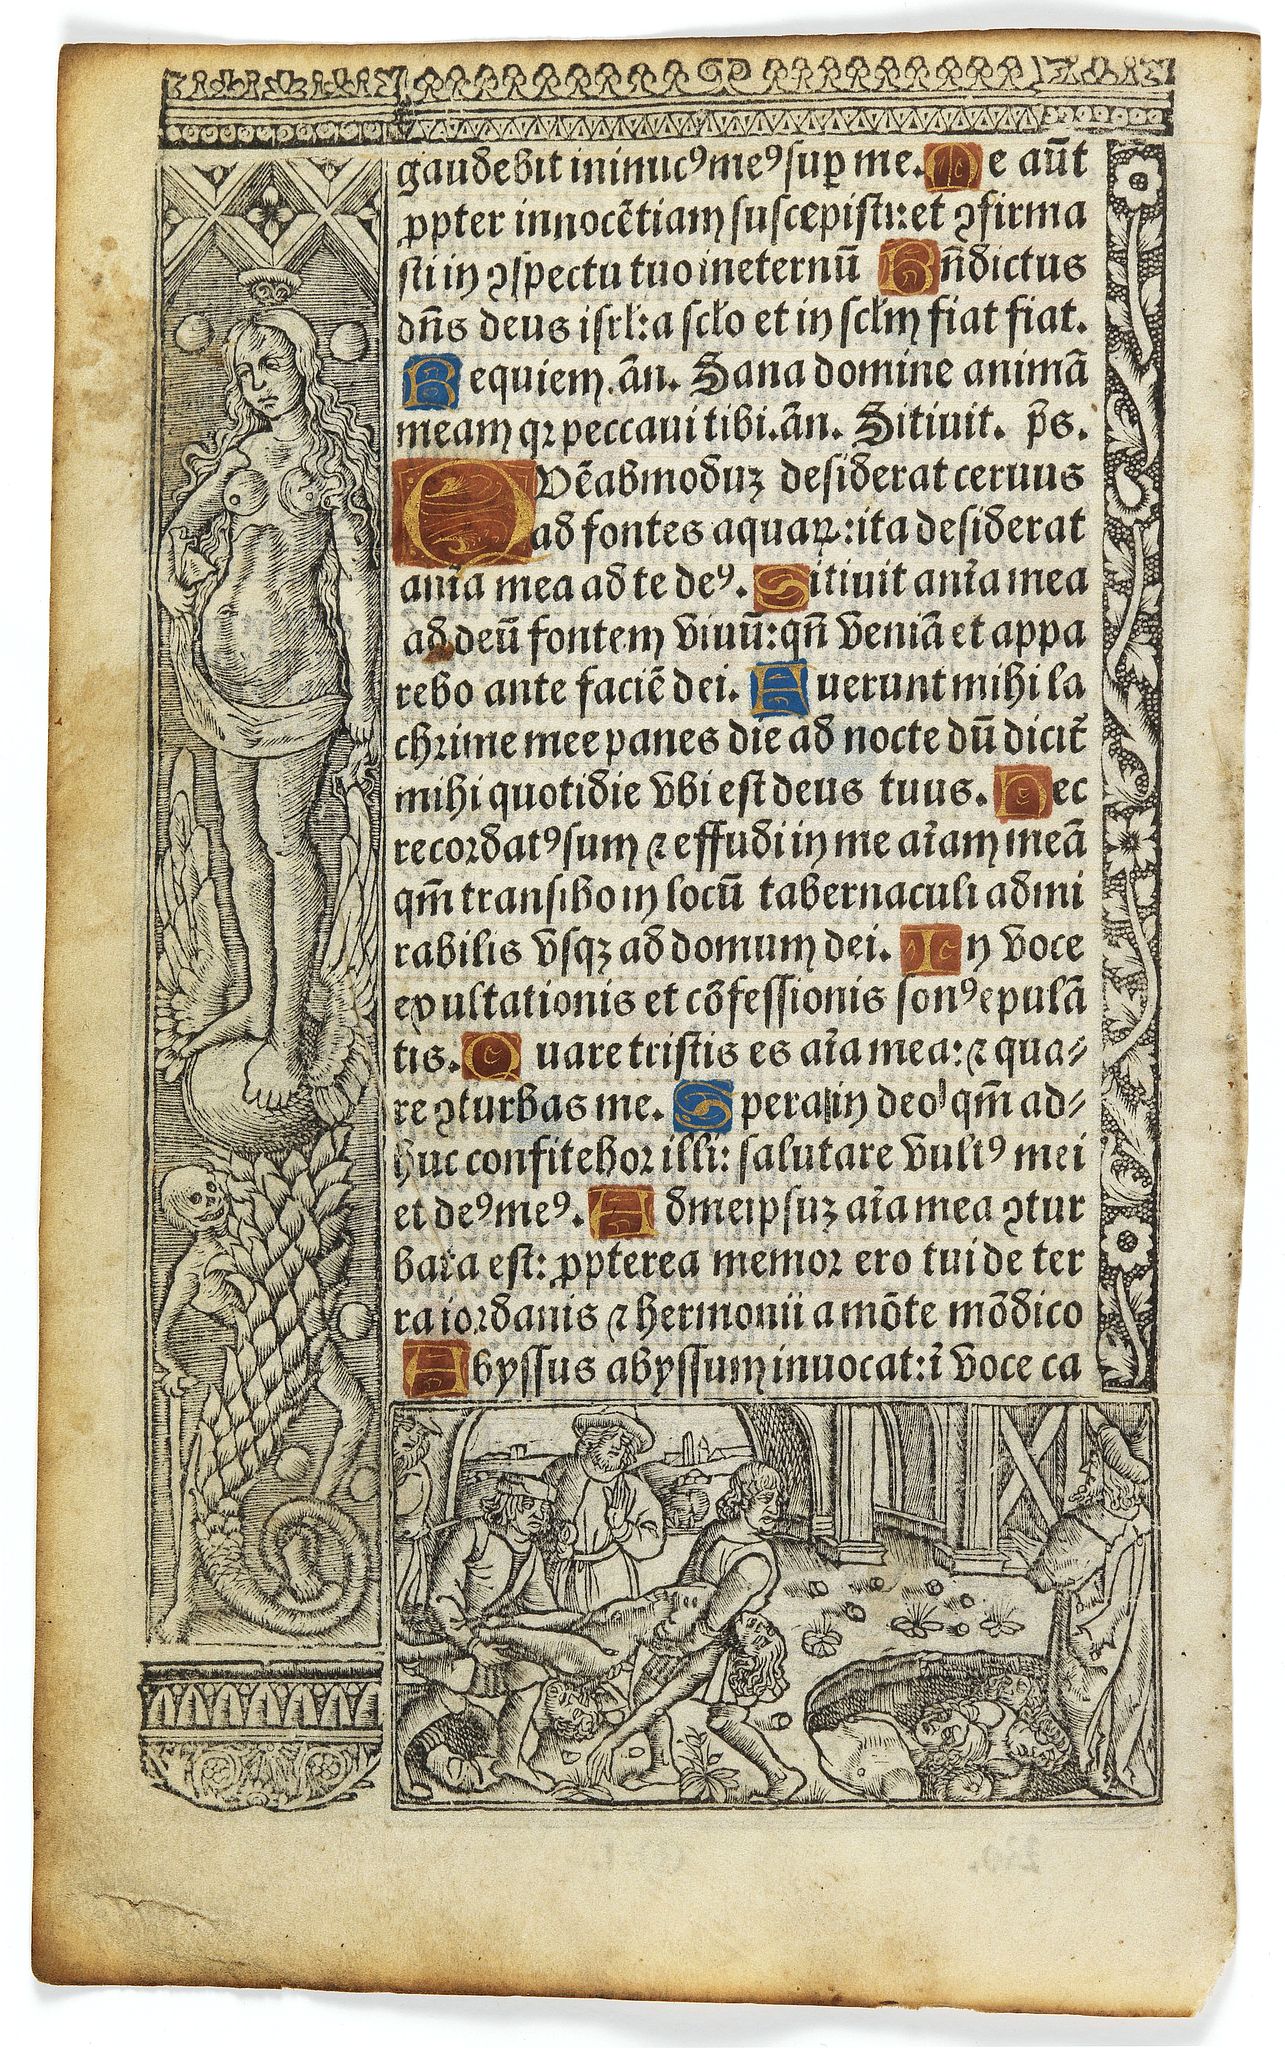 gaudebit inimicꝰ meꝰ suꝑ me. Me aūt
ꝓpter innocētiam suscepisti: et ꝯfirma
sti in ꝯspectu tuo in eternū Bn̄dictus
dn̄s deus isrl: a sclo et in sclm fiat fiat.
Requiem. ān. Sana domine animā
meam qꝛ peccaui tibi. ān. Sitiuit. p̄s.
QVēadmoduꝫ desiderat ceruus
ad fontes aquaꝝ: ita desiderat
anīa mea ad te deꝰ. Sitiuit anīa mea
ad deū fontem viuū: qn̄ veniā et appa
rebo ante faciē dei. Fuerunt mihi la
chrime mee panes die ad nocte dū dicit᷑
mihi quotidie vbi est deus tuus. Hec
recordatꝰ sum ⁊ effudi in me aīam meā
qm̄ transibo in locū tabernaculi admi
rabilis vsqꝫ ad domum dei. In voce
exultationis et cōfessionis sonꝰ epulā
tis. Quare tristis es aīa mea: ⁊ qua⸗
re ꝯturbas me. Spera in deo qm̄ ad⸗
huc confitebor illi: salutare vultꝰ mei
et deꝰ meꝰ. Ad meipsuꝫ aīa mea ꝯtur
bata est: ꝓpterea memor ero tui de ter
ra iordanis ⁊ hermonii a mōte mōdico
Abyssus abyssum inuocat: ī voce ca